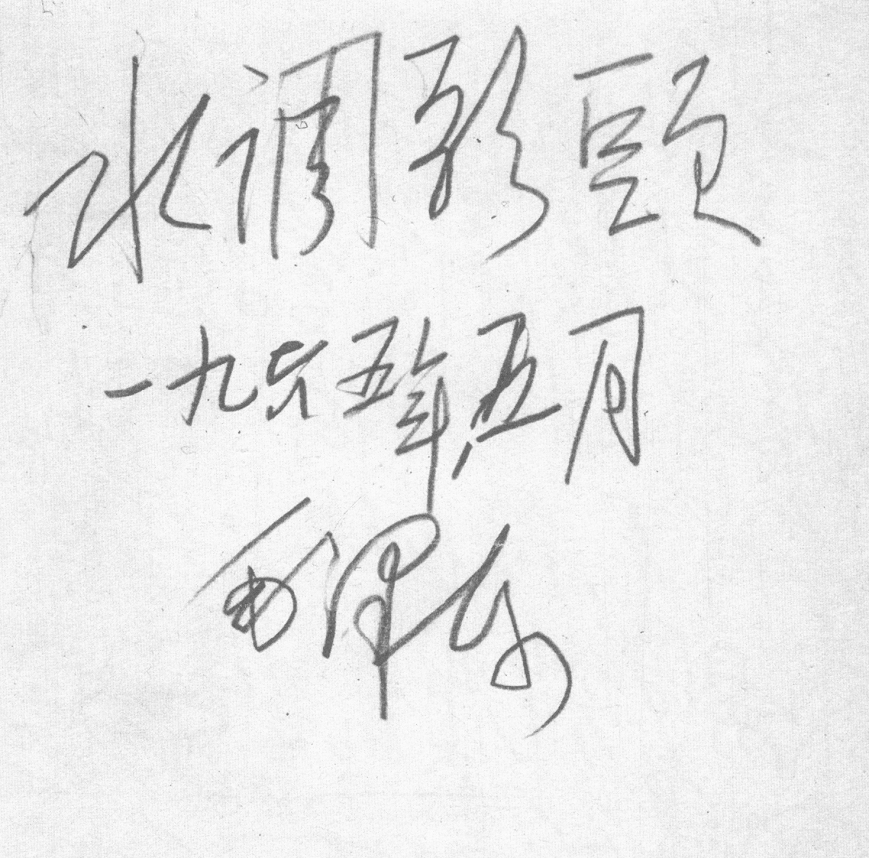 水调歌头
一九六五年五月
毛泽东